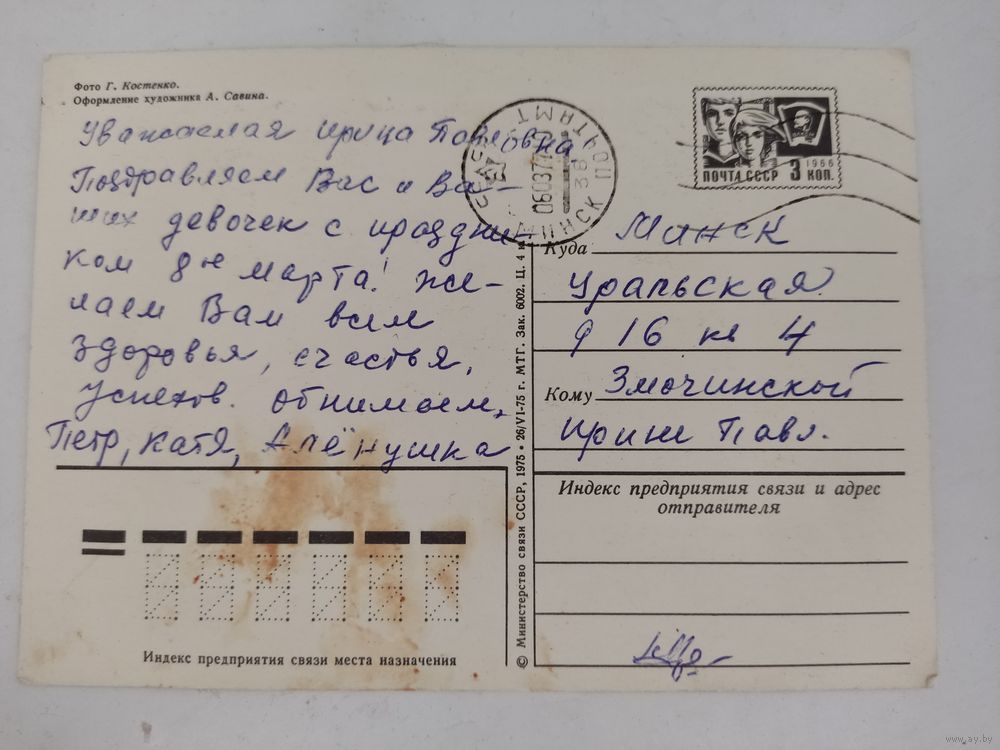 Фото Г. Костенко.
Оформление художника А. Савина.
Уважаемая Ирина Павловна
Поздравляем Вас и Ва-
ших девочек с праздни-
ком 8е марта! Же-
лаем Вам всем
здоровья, счастья,
успехов. Обнимаем,
Петр, Катя, Алёнушка
ПОЧТА СССР 3 КОП.
1966
МИНСК ПОЧТАМТ
Куда Минск
Уральская
д 16 кв 4
Кому Змочинской
Ирине Павл.
Индекс предприятия связи и адрес
отправителя
Индекс предприятия связи места назначения
© Министерство связи СССР, 1975 • 26/VI-75 г. МТГ. Зак. 6002. Ц. 4 к.
www.ay.by